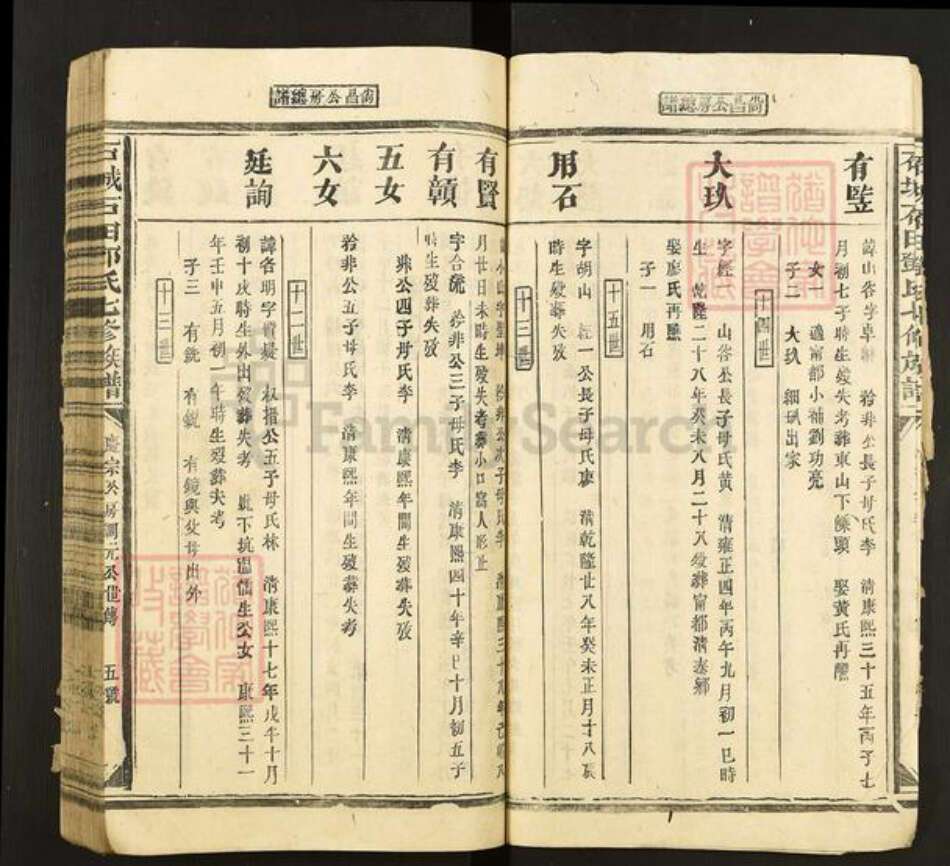 尙昌公房總譜
有㻑
諱山峇字卓 於非公長子母氏李 清康熙三十五年丙子七
月初七子時生歿失考葬東山下 娶黃氏再醮
女一 適甯都小補劉功亮
子二 大玖 細玖出家
十四世
大玖
字經一 山峇公長子母氏黃 清雍正四年丙午九月初一巳時
生 乾隆二十八年癸未八月二十八歿葬甯都清泰鄉
娶廖氏再醮
子一 用石
十五世
用石
字胡山 經一公長子母氏廖 清乾隆廿八年癸未正月十八
時生歿葬失攷
十三世
尙昌公房總譜
有賢
月廿日未時生歿失考葬小口窩人形止
有贛
字合 於非公三子母氏李 清康熙四十年辛巳十月初五子
時生歿葬失攷
五女
非公四子母氏李 清康熙年間生歿葬失攷
六女
於非公五子母氏李 清康熙年間生歿葬失考
十二世
廷詢
諱名明字質疑 公五子母氏林 清康熙十七年戊午十月
初十戌時生外出歿葬失考 下坑 生公女 康熙三十一
年壬申五月初一午時生歿葬失考
子三 有銃 有鋭 有鏡與父母出外
十三世
石城石田鄧氏七修族譜
慶宗公房調元公世傳
五號
FamilySearch